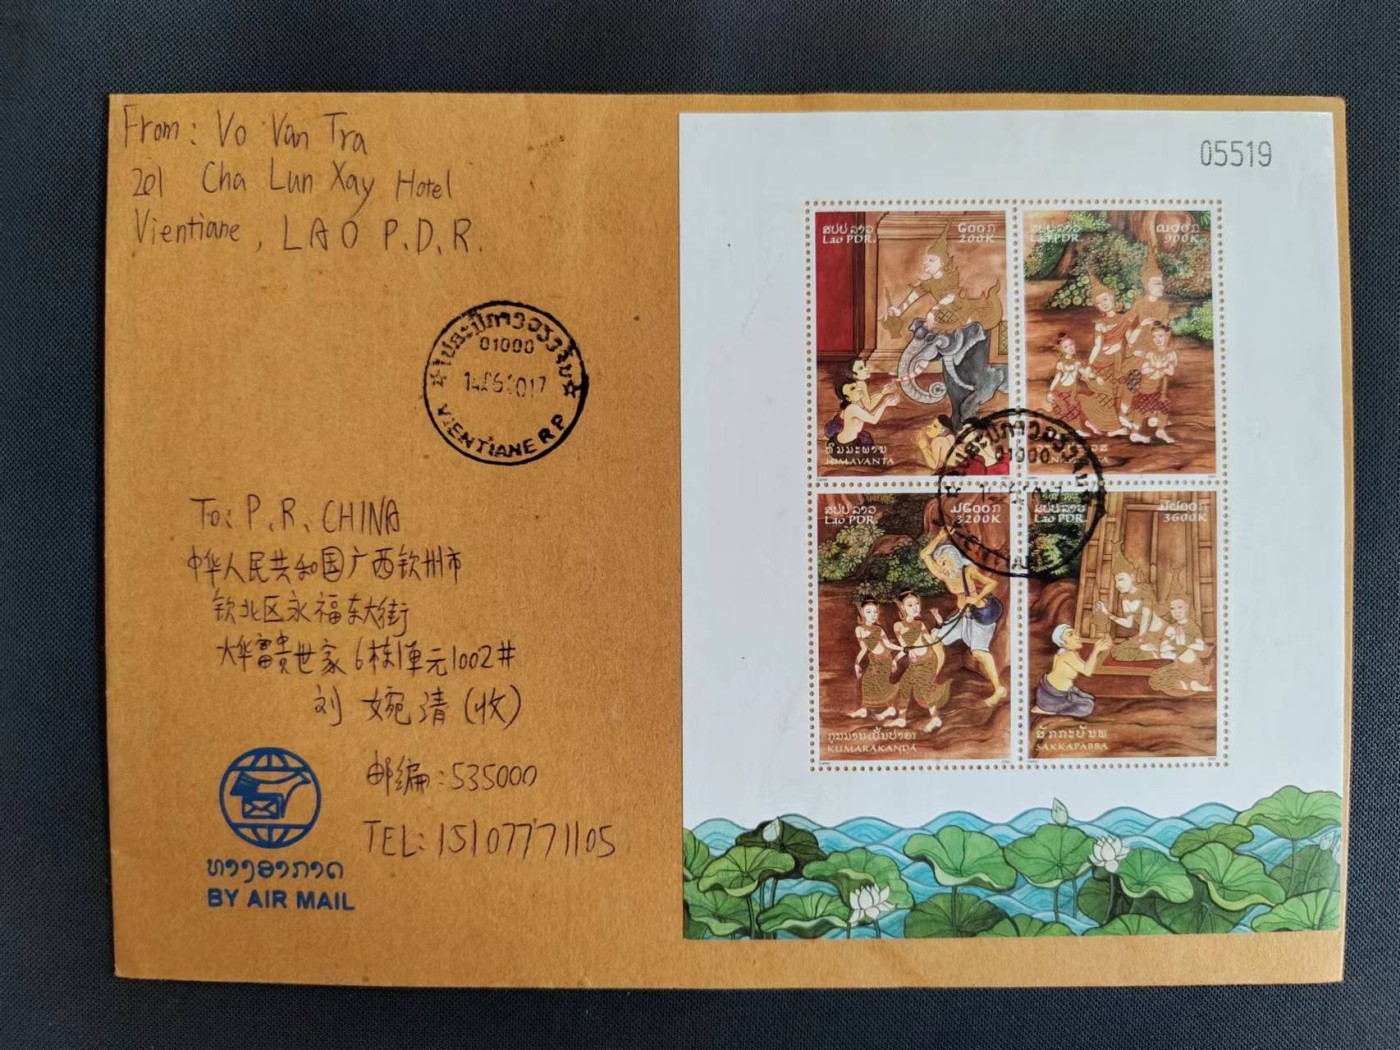 From: Vo Van Tra
201 Cha Lun Xay Hotel
Vientiane, LAO P.D.R.
ໄປສະນີກາງວຽງຈັນ
01000
2017
VIENTIANE R.P
To: P.R. CHINA
中华人民共和国广西钦州市
钦北区永福东大街
大华富贵世家6栋1单元1002#
刘婉清(收)
邮编:535000
TEL: 15107771105
ທາງອາກາດ
BY AIR MAIL
05519
ສປປ ລາວ ໒໐໐ກ
Lao PDR. 200K
ຫິມມະພານ
HIMAVANTA
ສປປ ລາວ ໙໐໐ກ
Lao PDR. 900K
ສປປ ລາວ ໓໒໐໐ກ
Lao PDR. 3200K
ກຸມມານ
KUMARAKANDA
ສປປ ລາວ ໓໖໐໐ກ
Lao PDR. 3600K
ສັກກະບັນພ
SAKKAPABBA
01000